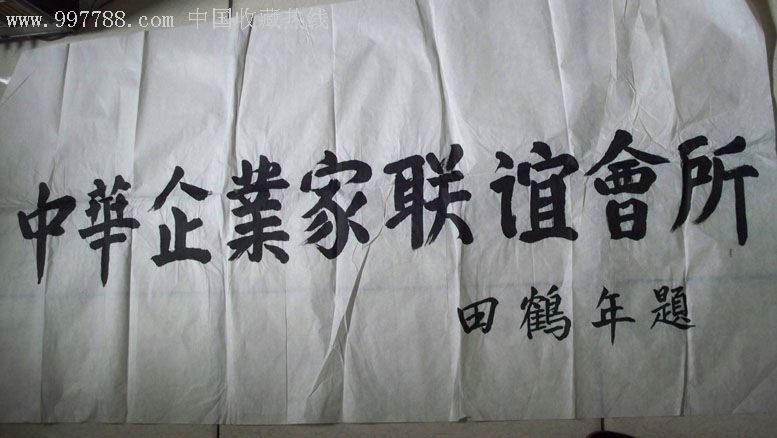 www.997788.com 中国收藏热线
中華企業家联谊會所
田鶴年題